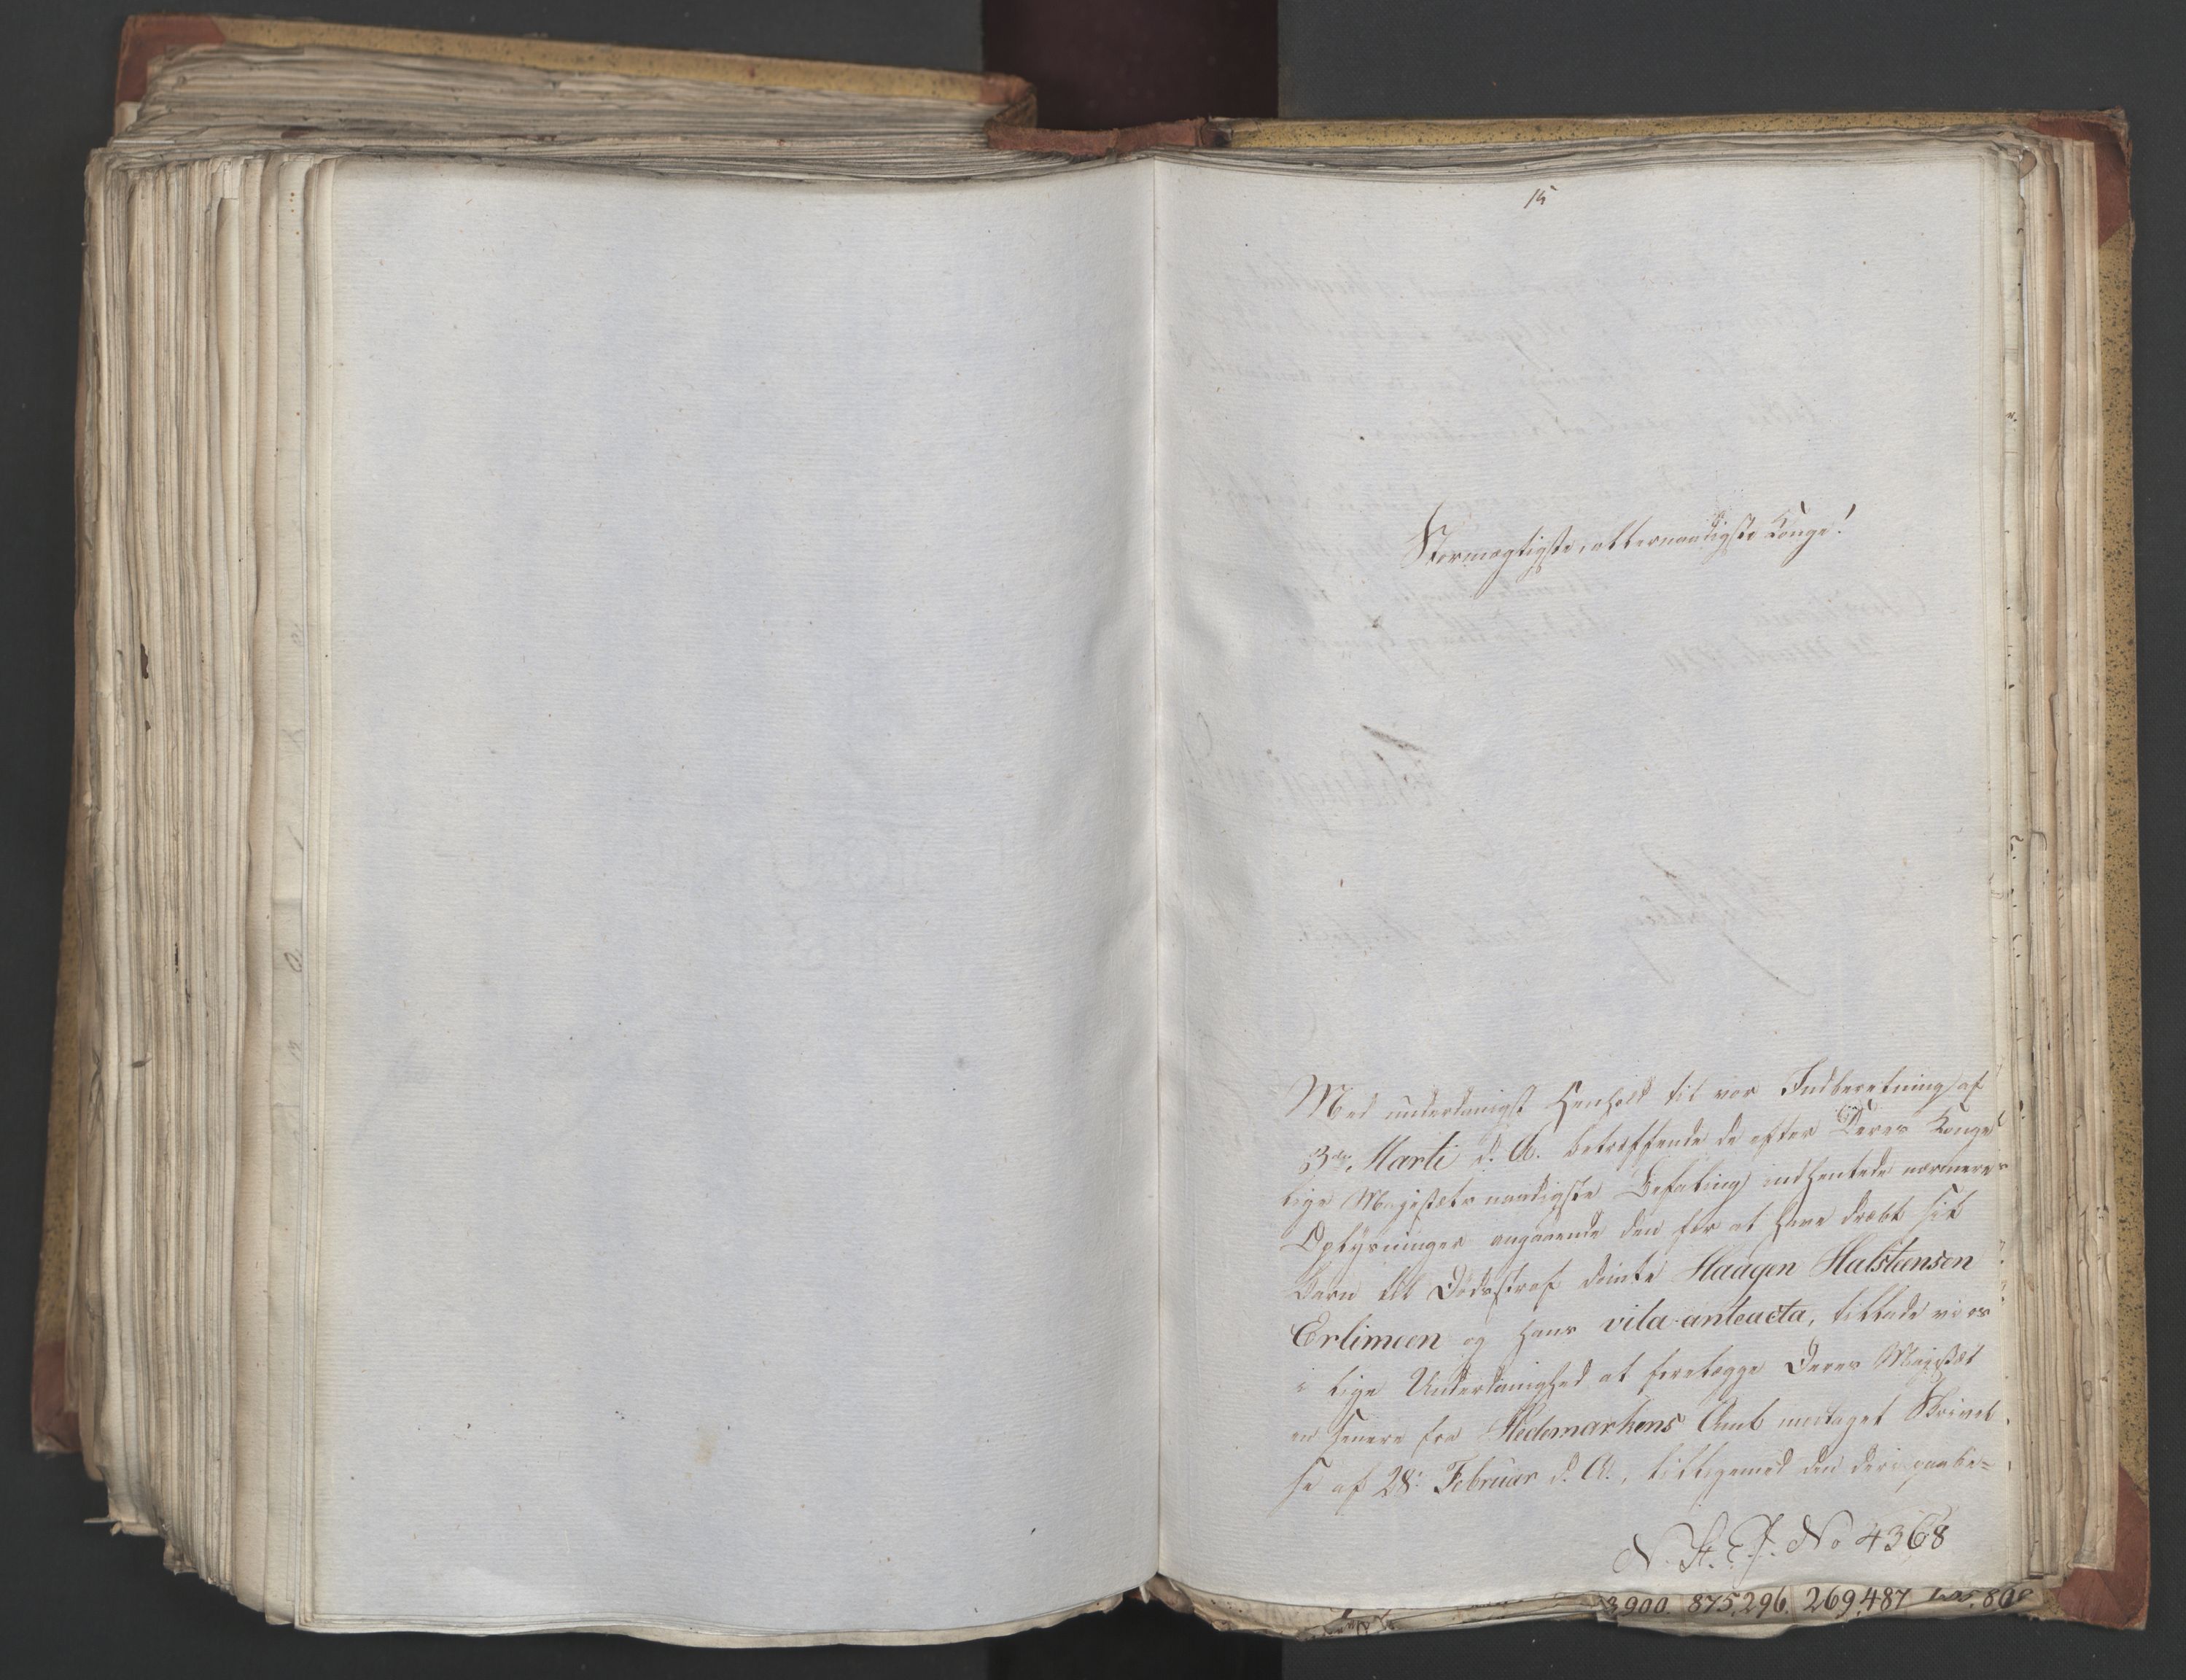 15
Stormægtigste, allernaadigste Konge!
Med underdanigst Henhold til vor Indberetning af
3die Marti d. A. betræffende de efter Deres Konge-
lige Majestæts naadigste Befaling indhentede nærmere
Oplysninger angaaende den for at have dræbt sit
Barn til Dødsstraf dømte Haagen Halstensen
Erlimoen og hans vita anteacta, tillade vi os
i lige Underdanighed at forelægge Deres Majestæt
en senere fra Hedemarkens Amt modtaget Skrivel
se af 28: Februar d. A., tilligemed den deri paabe=
N. St. E. J. No 4368
3,900. 875,296. 269,487